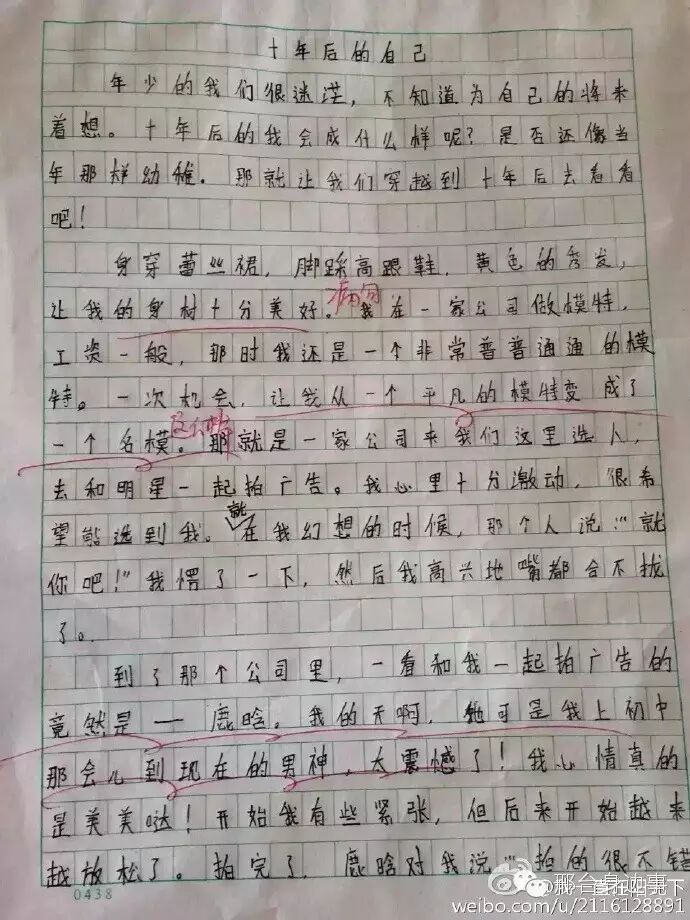 十年后的自己
年少的我们很迷茫，不知道为自己的将来
着想。十年后的我会成什么样呢？是否还像当
年那样幼稚。那就让我们穿越到十年后去看看
吧！
身穿蕾丝裙，脚踩高跟鞋，黄色的秀发，
让我的身材十分美好。病句我在一家公司做模特，
工资一般，那时我还是一个非常普普通通的模
特。一次机会，让我从一个平凡的模特变成了
一个名模。那就是一家公司来我们这里选人，
去和明星一起拍广告。我心里十分激动，很希
望能选到我。就在我幻想的时候，那个人说“就
你吧！”我愣了一下，然后我高兴地嘴都合不拢
了。
到了那个公司里，一看和我一起拍广告的
竟然是——鹿晗。我的天啊，他可是我上初中
那会儿到现在的男神，太震憾了！我心情真的
是美美哒！开始我有些紧张，但后来开始越来
越放松了。拍完了，鹿晗对我说“拍的很不错
0438
weibo.com/u/2116128891